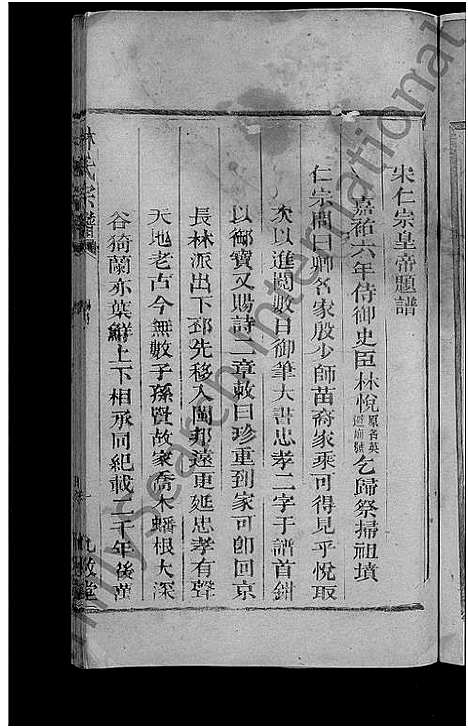 宋仁宗皇帝題譜
嘉祐六年侍御史臣林悅原名英避廟號乞歸祭掃祖墳
仁宗問曰卿名家殷少師苗裔家乘可得見乎悅取
次以進閱數日御筆大書忠孝二字于譜首鈐
以御寶又賜詩二章敕曰珍重到家可卽回京
長林派出下邳先移入閩邦遠更延忠孝有聲
天地老古今無數子孫賢故家喬木蟠根大深
谷猗蘭亦葉鮮上下相承同紀載二千年後萬
林氏宗譜
九牧堂